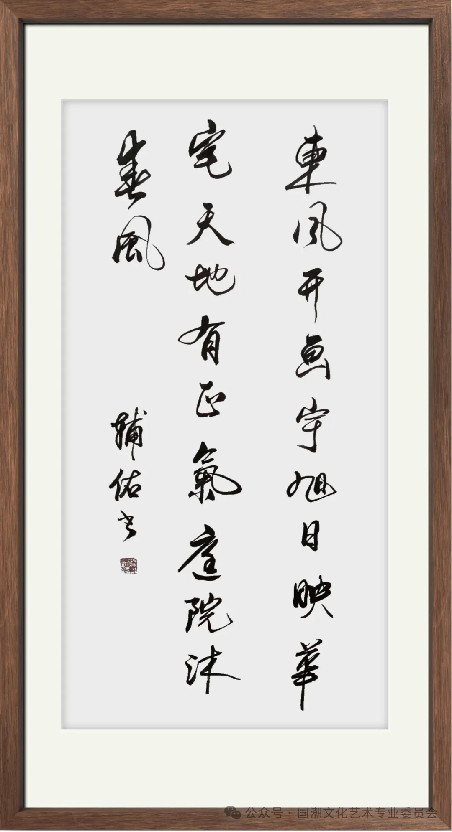 東風开画宇旭日映華
宅天地有正氣庭院沐
春風
輔佑书
公众号·国潮文化艺术专业委员会